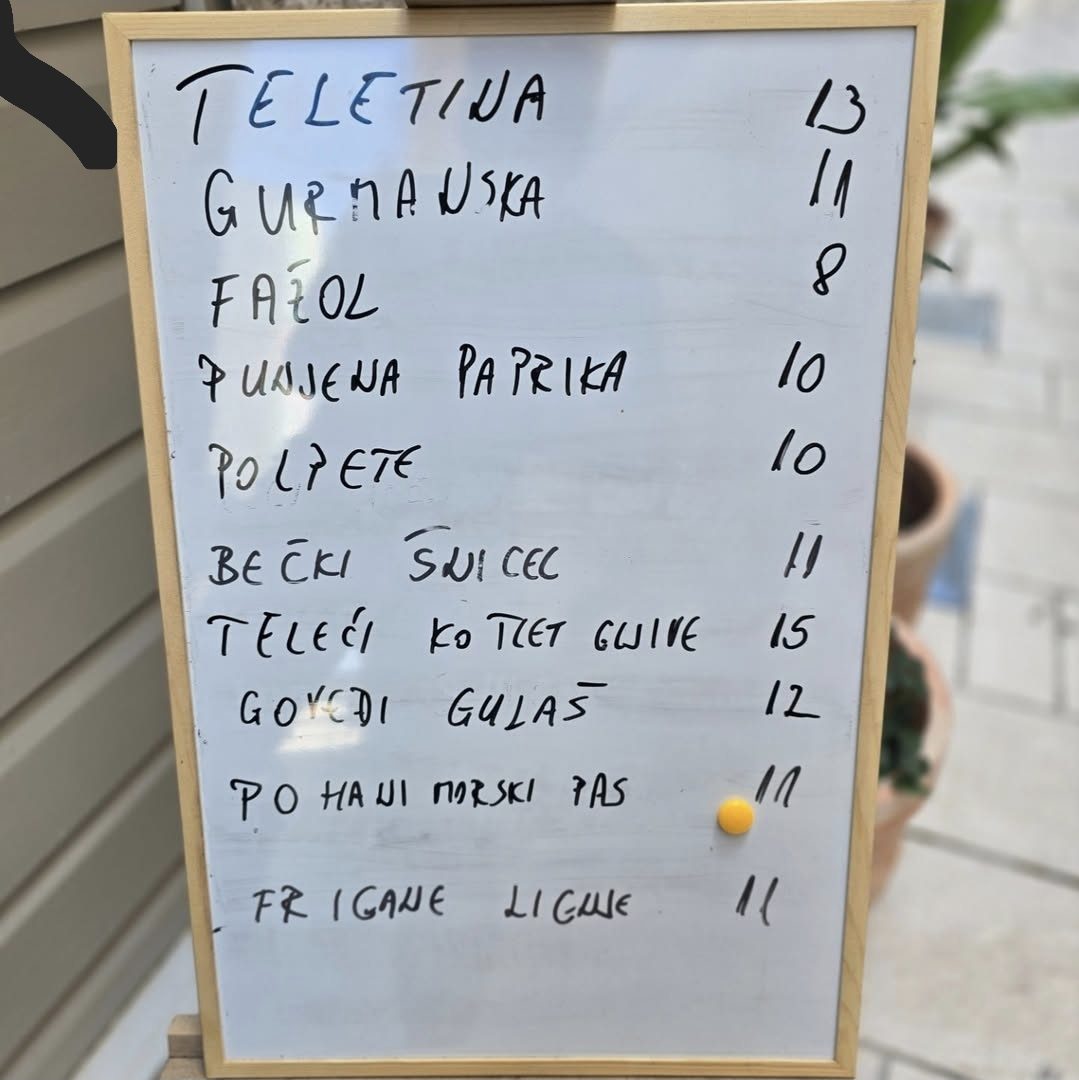 TELETINA 13
GURMANSKA 11
FAŽOL 8
PUNJENA PAPRIKA 10
POLPETE 10
BEČKI ŠNICEL 11
TELEĆI KOTLET GLJIVE 15
GOVEĐI GULAŠ 12
POHANI MORSKI PAS 11
FRIGANE LIGNJE 11